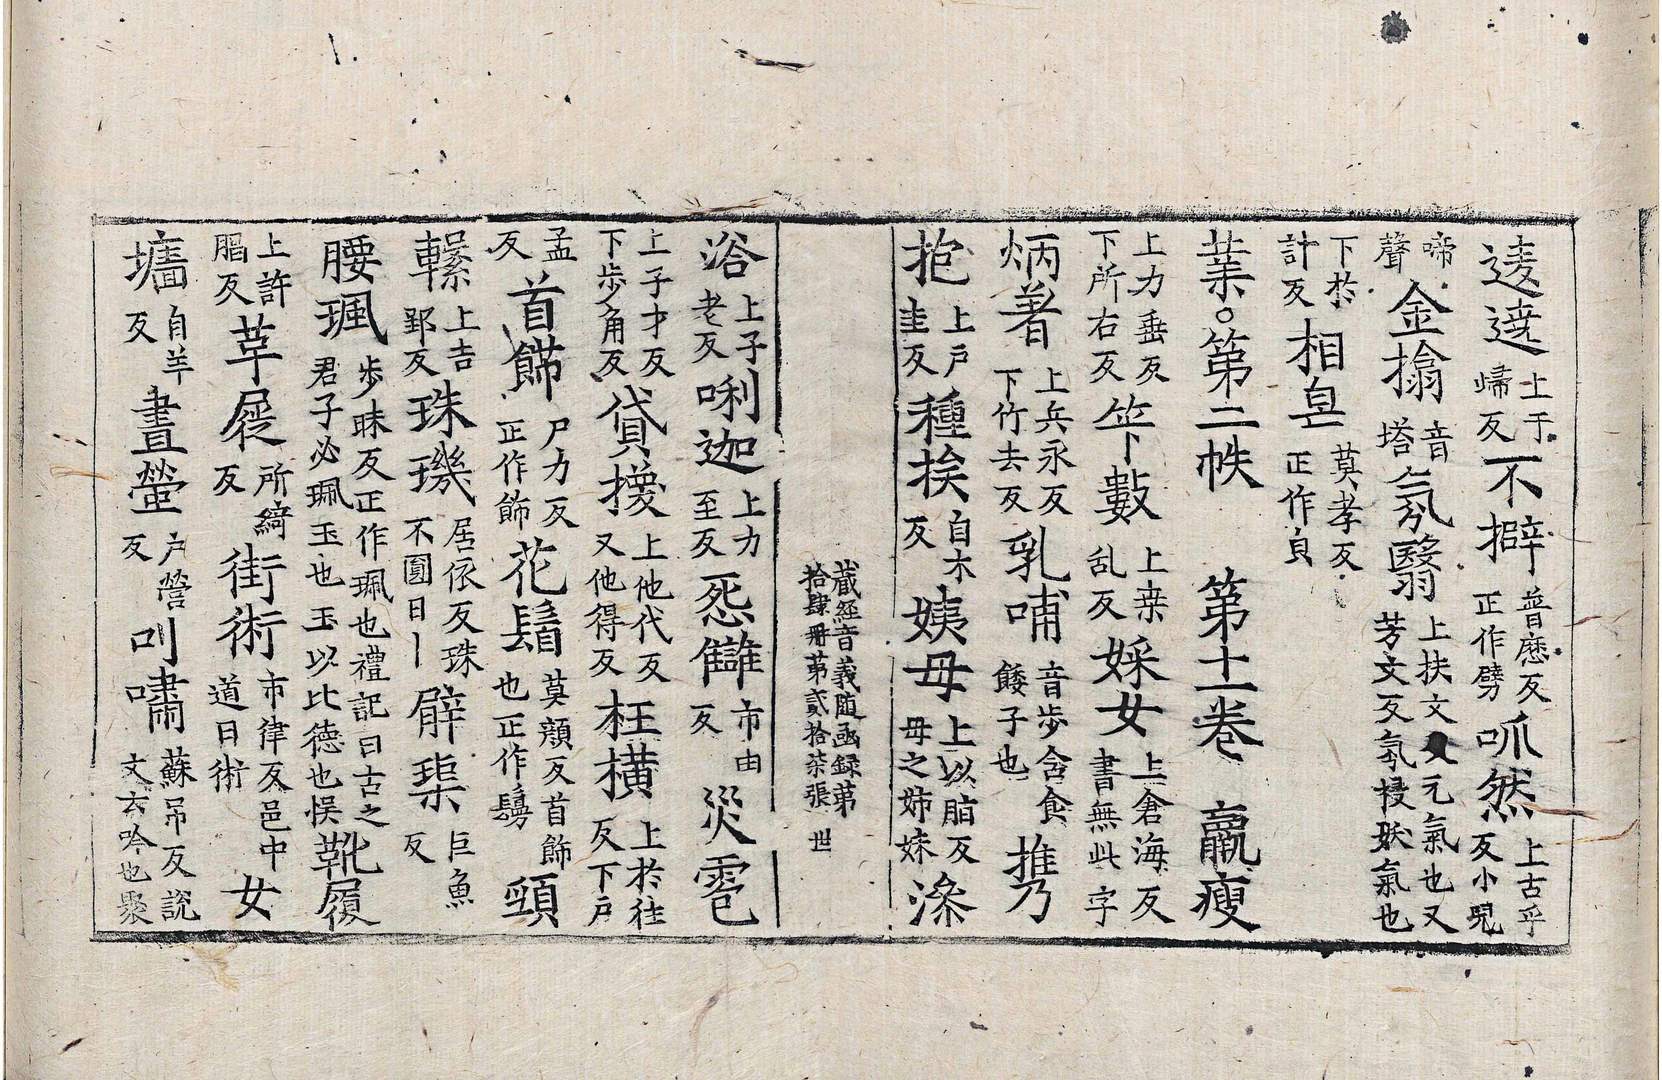 逶逶上于㷄反不擗普㦄反正作劈呱然上古乎反小児
啼聲金搨音塔氛翳上扶文反元氣也又芳文反氛祲妖氣也
下於計反相皃莫孝反正作㒵
業。第二帙 第十一卷 羸瘦
上力垂反下所右反竿數上桒乱反婇女上倉海反書無此字
炳著上兵永反下竹去反乳哺音步含食餧子也㩦
抱上戶圭反種挨自木反姨母上以脂反母之姉妹㴨
藏經音義随函録第
拾肆冊第貳拾柒張 世
浴上子老反唎迦上力至反惌讎市由反災雹
上子才反下歩角反貸擾上他代反又他得反枉橫上於徃反下戶
孟反首餙尸力反正作飾花鬘莫顔反首飾也正作鬘頸
繫上吉郢反珠璣居依反珠不圎曰丨臂璖巨魚反
腰珮歩昧反正作珮也禮記曰古之君子必珮玉也玉以比德也悮靴履
上許𦛨反革屣所綺反街術市律反邑中道曰術女
墻自羊反晝螢戶營反叫嘯蘇吊反說文云吟也聚